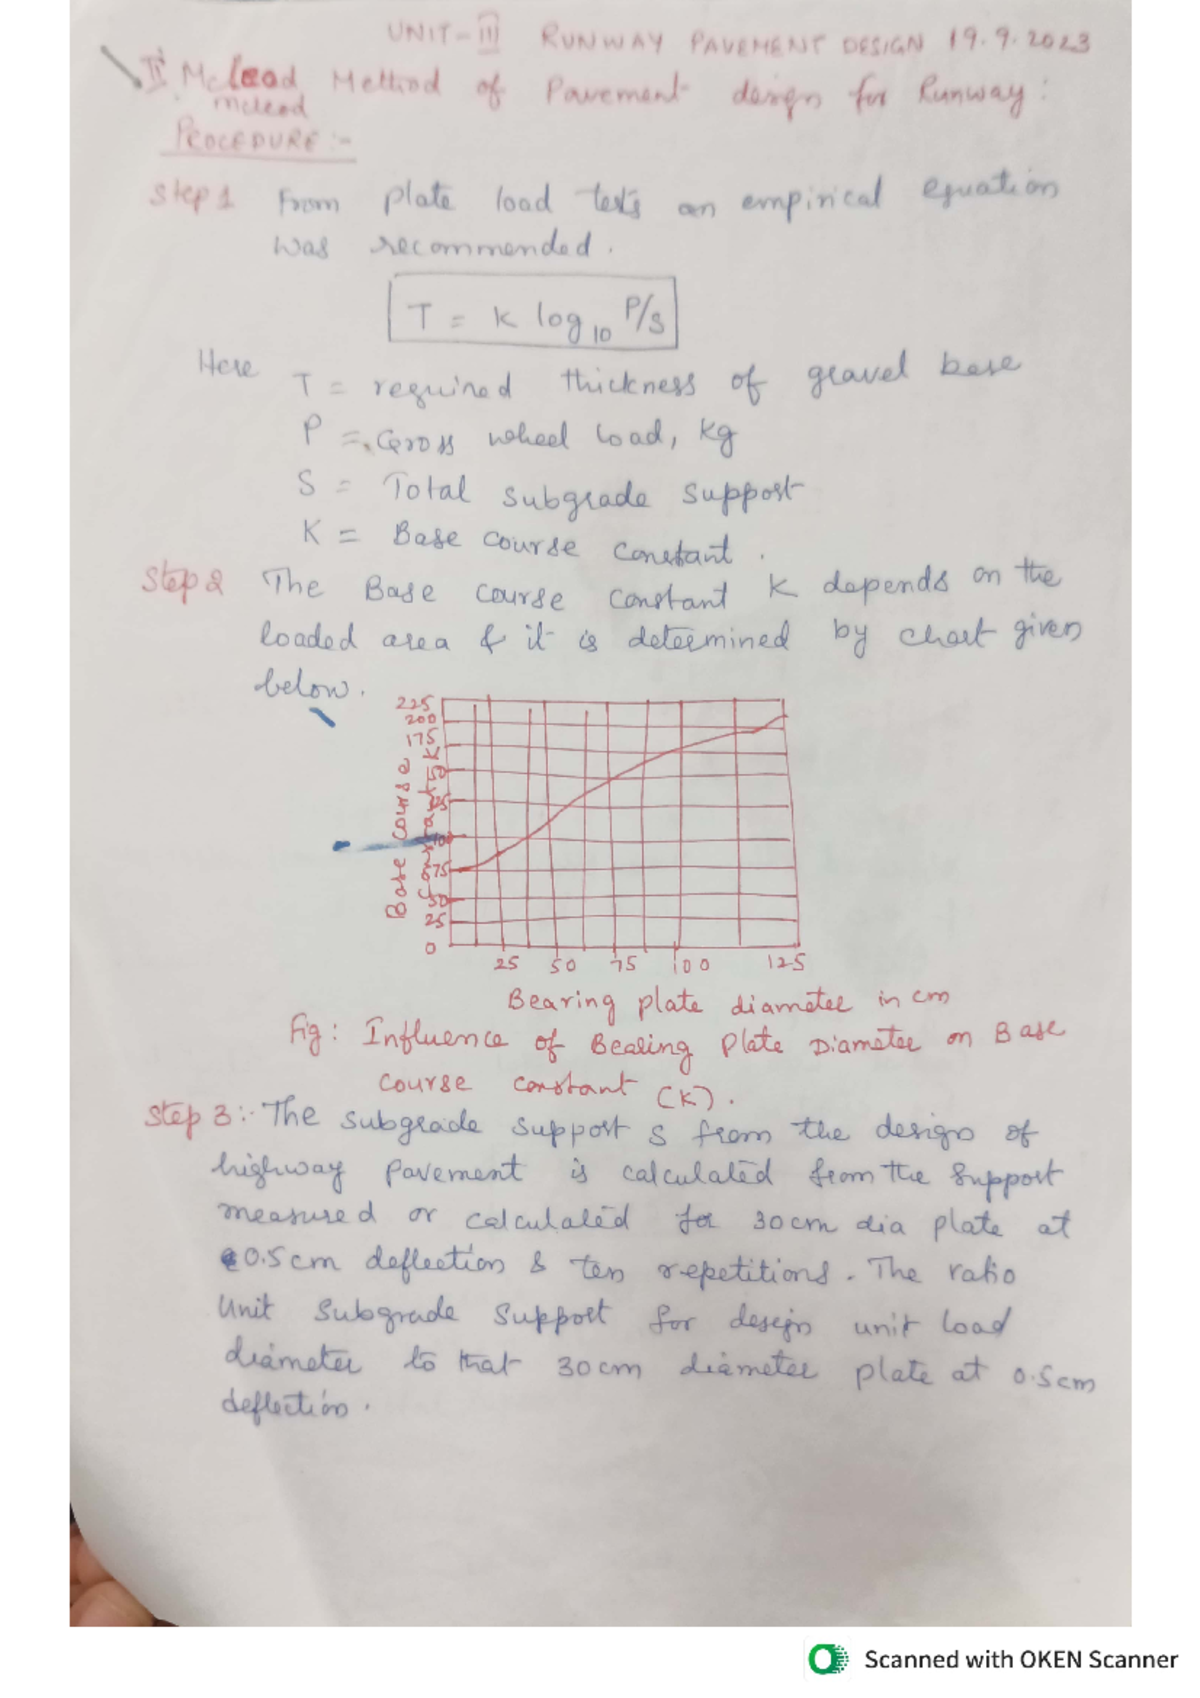 UNIT-III RUNWAY PAVEMENT DESIGN 19.9.2023
II Mcleod Method of Pavement design for Runway:
mcleod
PROCEDURE :-
Step 1 From plate load tests an empirical equation
was recommended.
T = K log10 P/S
Here T = required thickness of gravel base
P = Gross wheel load, kg
S = Total subgrade support
K = Base course constant.
Step 2 The Base course constant K depends on the
loaded area & it is determined by chart given
below.
225
200
175
150
125
100
75
50
25
0
Base course
Constant K
25 50 75 100 125
Bearing plate diameter in cm
Fig: Influence of Bearing Plate Diameter on Base
course constant (K).
Step 3:- The subgrade support S from the design of
highway pavement is calculated from the support
measured or calculated for 30cm dia plate at
0.5cm deflection & ten repetitions. The ratio
Unit Subgrade Support for design unit load
diameter to that 30cm diameter plate at 0.5cm
deflection.
Scanned with OKEN Scanner